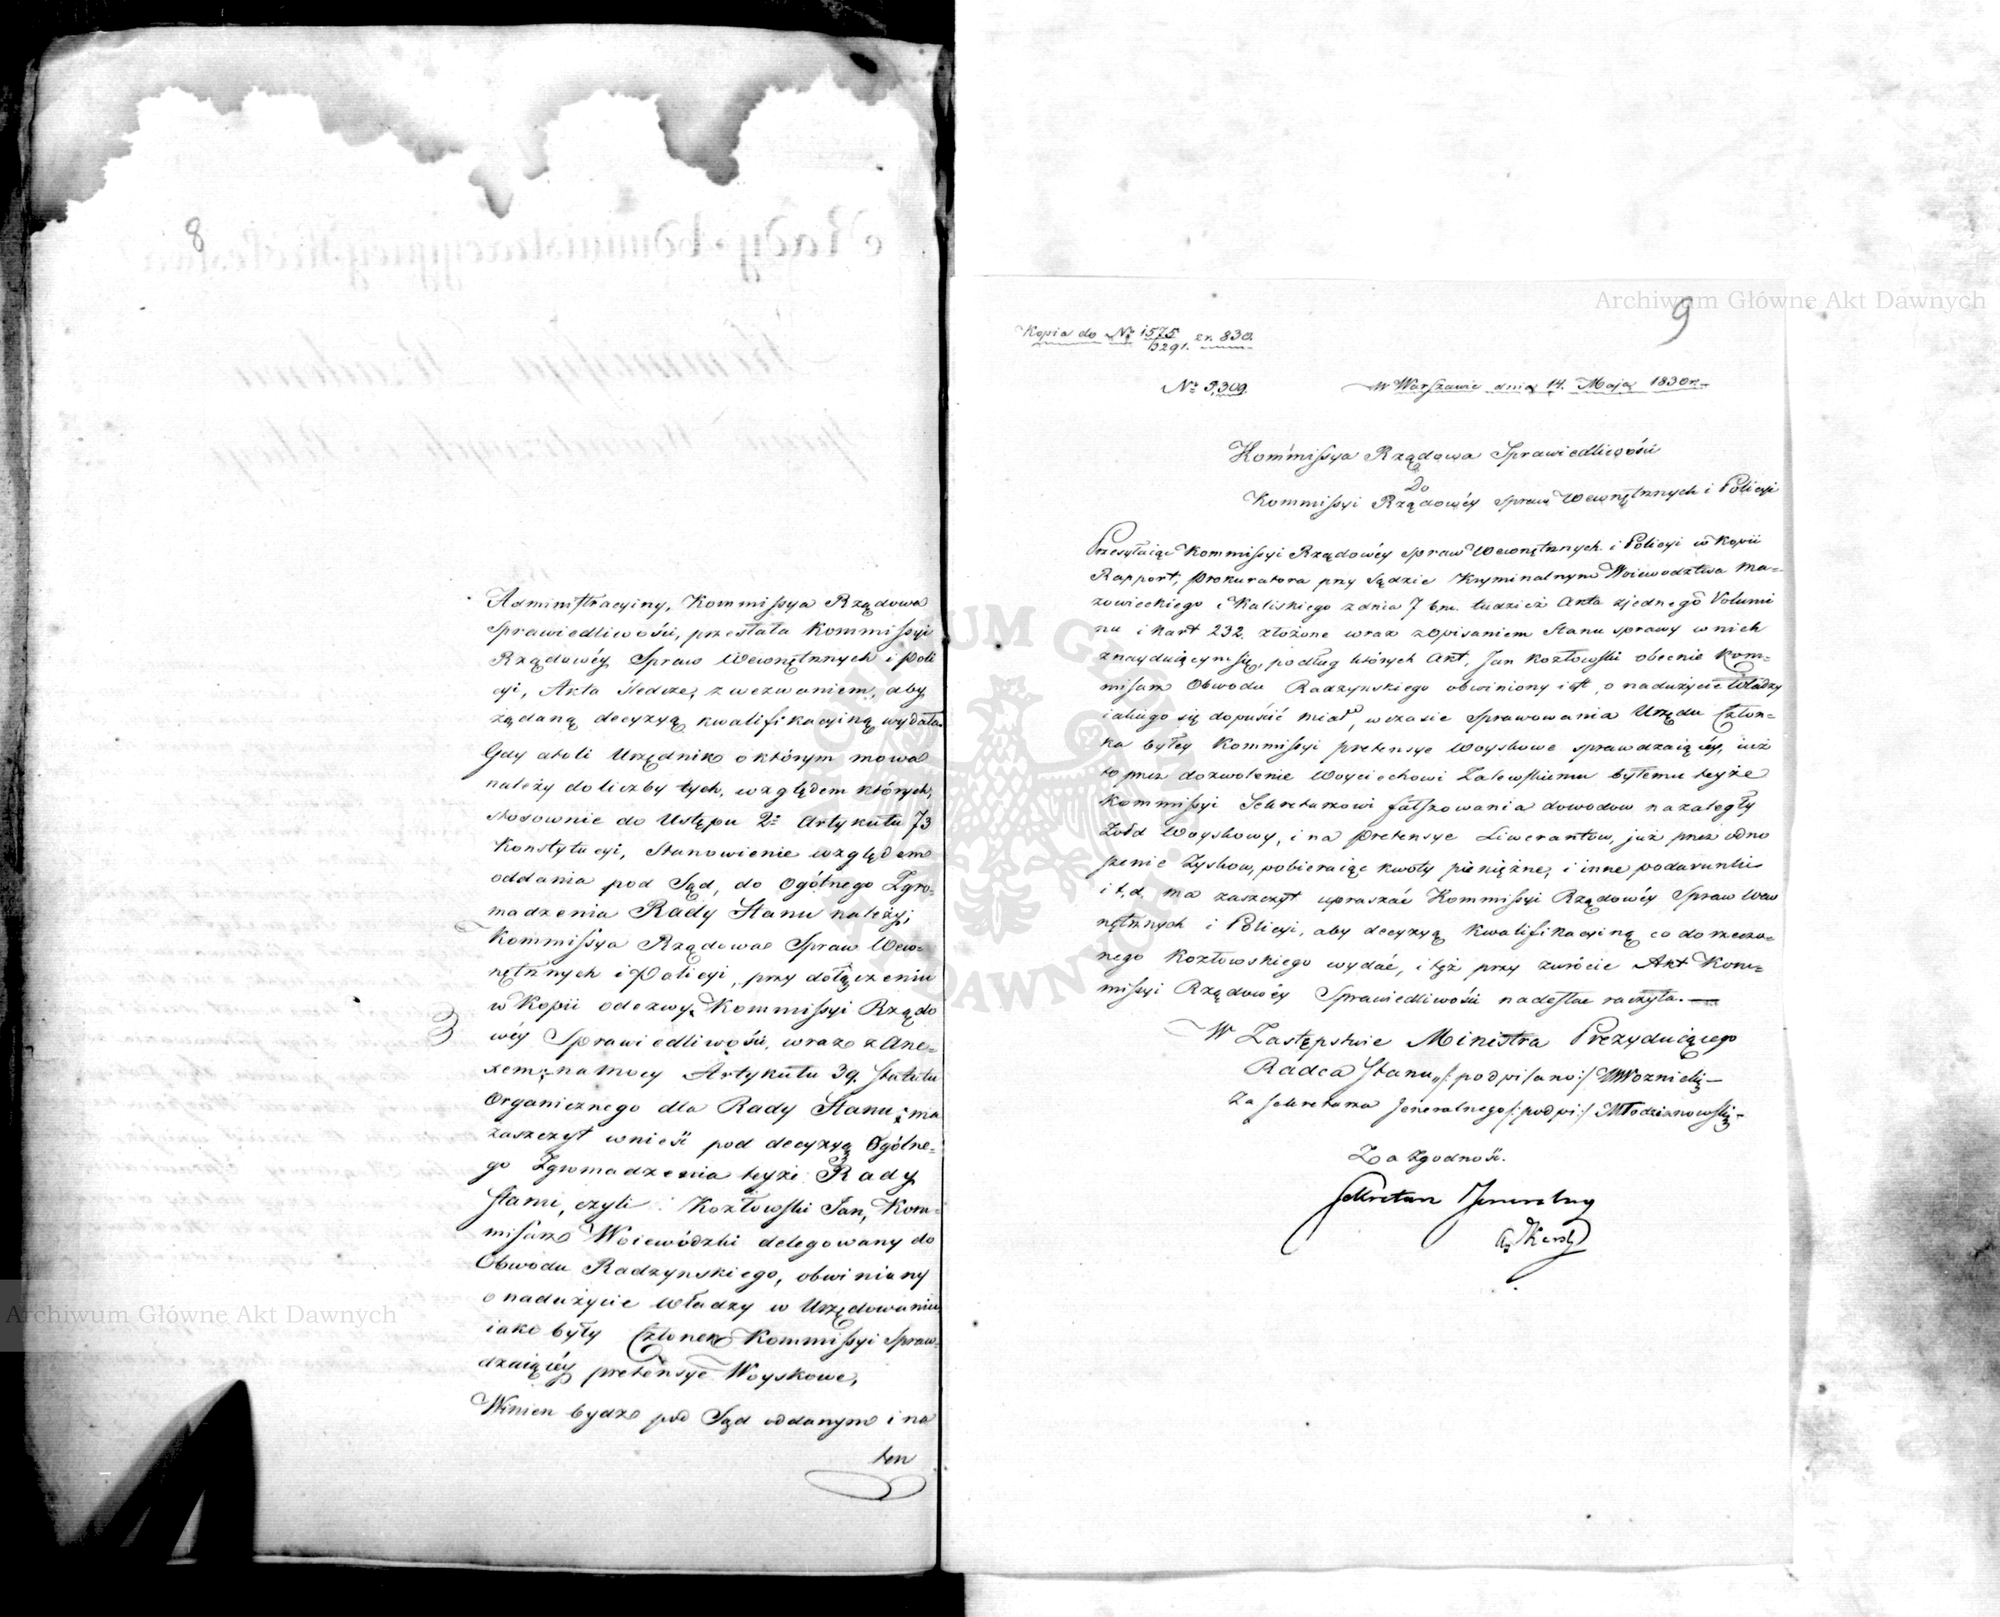 8
Administracyiny, Kommissya Rządowa
Sprawiedliwości, przesłała Kommissyi
Rządowéy Spraw Wewnętrznych i Poli
cyi, Akta śledcze, z wezwaniem, aby
żądaną decyzyą kwalifikacyiną wydała.
Gdy atoli Urzędnik o którym mowa
należy do liczby tych, względem których,
stosownie do Ustępu 2º Artykułu 73
Konstytucyi, Stanowienie względem
oddania pod Sąd, do Ogólnego Zgro-
madzenia Rady Stanu należy;
Kommissya Rządowa Spraw Wew-
nętrznych i Policyi, przy dołączeniu
w Kopii odezwy Kommissyi Rządo
wéy Sprawiedliwości, wraz z Ane-
xem; na mocy Artykułu 39. Statutu
Organicznego dla Rady Stanu; ma
zaszczyt wnieść pod decyzyą Ogólne-
go Zgromadzenia teyże Rady
Stanu, czyli Kozłowski Jan, Kom-
missarz Woiewódzki delegowany do
Obwodu Radzynskiego, obwiniany
o nadużycie władzy w Urzędowaniu
iako były Członek Kommissyi Spraw-
dzaiącéy pretensye Woyskowe,
Winien bydź pod Sąd oddanym i na
ten
9
Kopia do Nº 1575/13291. zr. 830.
Nº 5,309.
W Warszawie dnia 14. Maja 1830 r.
Kommissya Rządowa Sprawiedliwości
Do
Kommissyi Rządowéy Spraw Wewnętrznych i Policyi
Przesyłaiąc Kommissyi Rządowéy Spraw Wewnętrznych i Policyi w Kopii
Rapport, Prokuratora przy Sądzie Kryminalnym Woiewodztwa Ma-
zowieckiego i Kaliskiego z dnia 7 b.m. tudzież Akta z jednego Volumi
nu i kart 232. złożone wraz z opisaniem Stanu sprawy w nich
znayduiącym się, podług których Akt, Jan Kozłowski obecnie Kom-
missarz Obwodu Radzynskiego obwiniony iest, o nadużycie Władzy
iakiego się dopuścić miał, w czasie sprawowania Urzędu Człon-
ka byłey Kommissyi pretensye Woyskowe sprawdzaiącéy, iuż
to przez dozwolenie Woyciechowi Zalewskiemu byłemu teyże
Kommissyi Sekretarzowi fałszowania dowodow na zaległy
Żołd Woyskowy, i na Pretensye Liwerantow, już przez odno
szenie Zyskow, pobieraiąc kwoty pieniężne, i inne podarunki
i t.d. ma zaszczyt upraszać Kommissyi Rządowéy Spraw Wew
nętrznych i Policyi, aby decyzyą kwalifikacyiną co do rzeczo-
nego Kozłowskiego wydać, i tęż przy zwrócie Akt Kom-
missyi Rządowéy Sprawiedliwości nadesłać raczyła. —
W Zastępstwie Ministra Prezyduiącego
Radca Stanu /: podpisano :/ M Woznicki
Za Sekretarza Jeneralnego /: podpi :/ Młodzianowski
Za Zgodność.
Sekretarz Jeneralny
Archiwum Główne Akt Dawnych
Archiwum Główne Akt Dawnych
ARCHIWUM GŁÓWNE AKT DAWNYCH